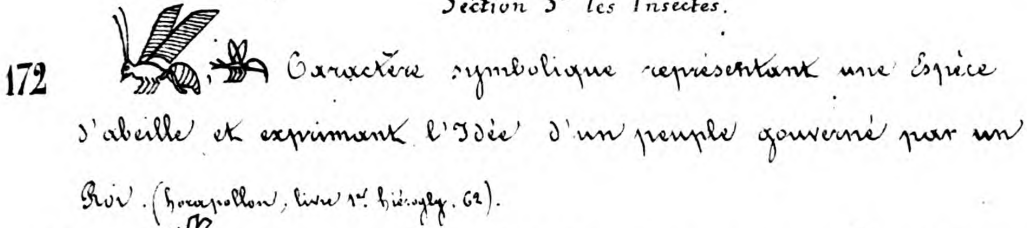 Section 5 les Insectes.
172 , Caractère symbolique représentant une Espèce
d'abeille et exprimant l'Idée d'un peuple gouverné par un
Roi. (horapollon, livre 1er hiérogly. 62).